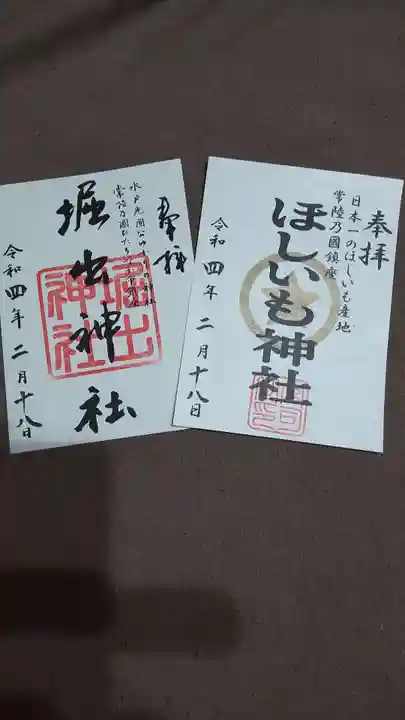 奉拝
水戸光圀公ゆかりの神社
堀出神社
堀出
神社
令和四年二月十八日
奉拝
日本一のほしいも産地
常陸乃國鎮座
ほしいも神社
令和四年二月十八日